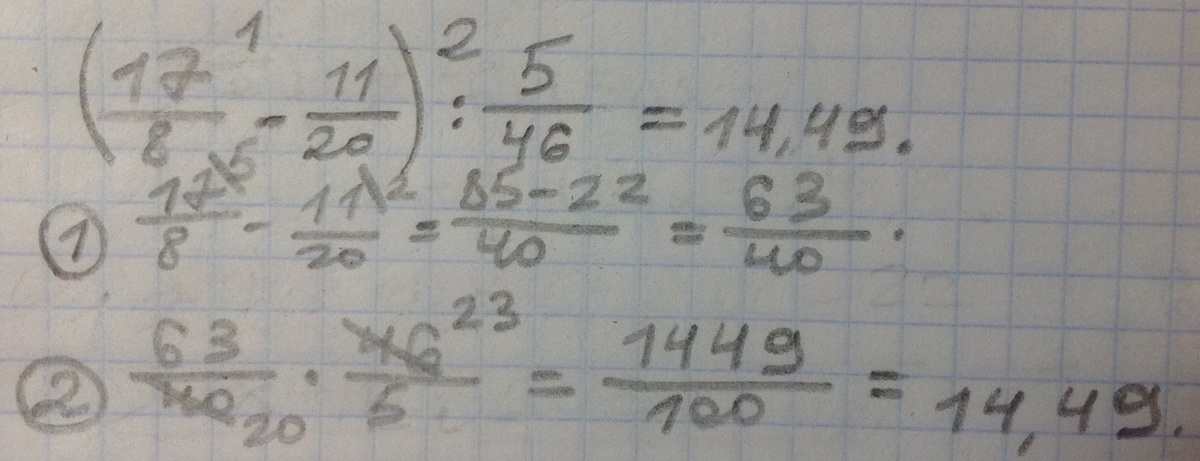 (17/8 - 11/20) : 5/46 = 14,49.
1 2
① 17\5/8 - 11\2/20 = 85-22/40 = 63/40.
② 63/40 20 · 46 23/5 = 1449/100 = 14,49.